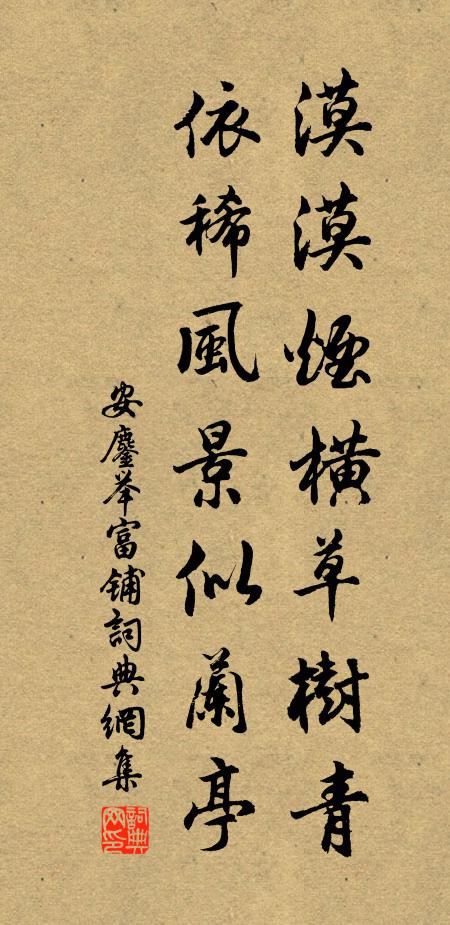 漠漠煙橫草樹青
依稀風景似蘭亭
安鏖举富鋪詞典網集
詞典
网印